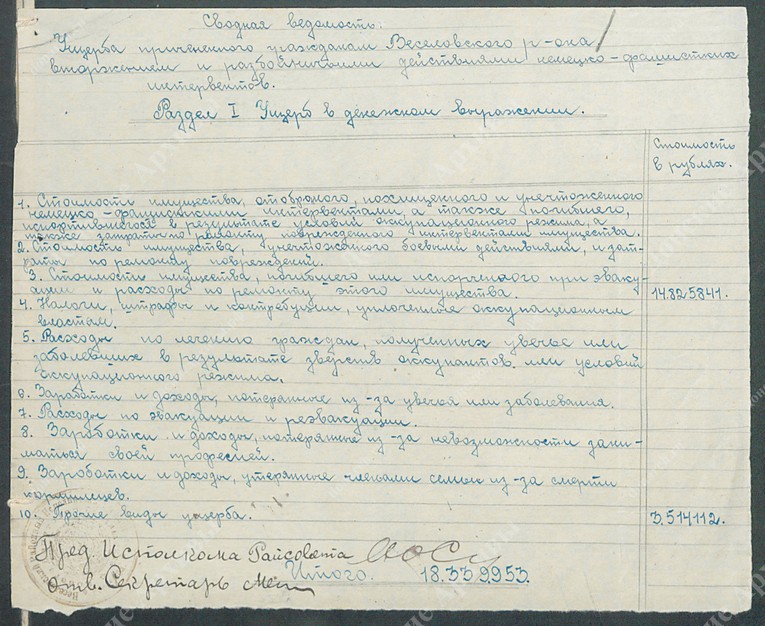 Сводная ведомость.
Ущерба причененного гражданам Веселовского р-она
вторжением и разбойничьими действиями немецко-фашистких
интервентов.
Раздел I Ущерб в денежном выражении.
Стоимость
в рублях.
1. Стоимости имущества, отобраного, похищенного и унечтоженного
немецко-фашискими интервентами, а также погибшего,
испортившегося в результате условий окупационного режима, а
также затраты по ремонту поврежденного интервентами имущества.
2. Стоимость имущества, унечтоженого боевыми действиями, и зат-
раты по ремонту повреждений.
3. Стоимости имущества, погибшего или испорченого при эваку-
ации и расходы по ремонту этого имущества.
14.825841.
4. Налоги, штрафы и контребуции, уплоченные оккупационным
властям.
5. Расходы по лечению граждан, полученных увечье или
заболевших в результате зверств оккупантов или условий
оккупационного режима.
6. Заработки и доходы, потерянные из-за увечья или заболевания.
7. Расходы по эвакуации и реэвакуации.
8. Зароботки и доходы, потерянные из-за невозможности зани-
маться своей професией.
9. Зароботки и доходы, утерянные членами семьи из-за смерти
кормильцев.
10. Прочие виды ущерба.
3.514112.
Пред. Исполкома Райсовета
Итого. 18.339953.
Отв. Секретарь